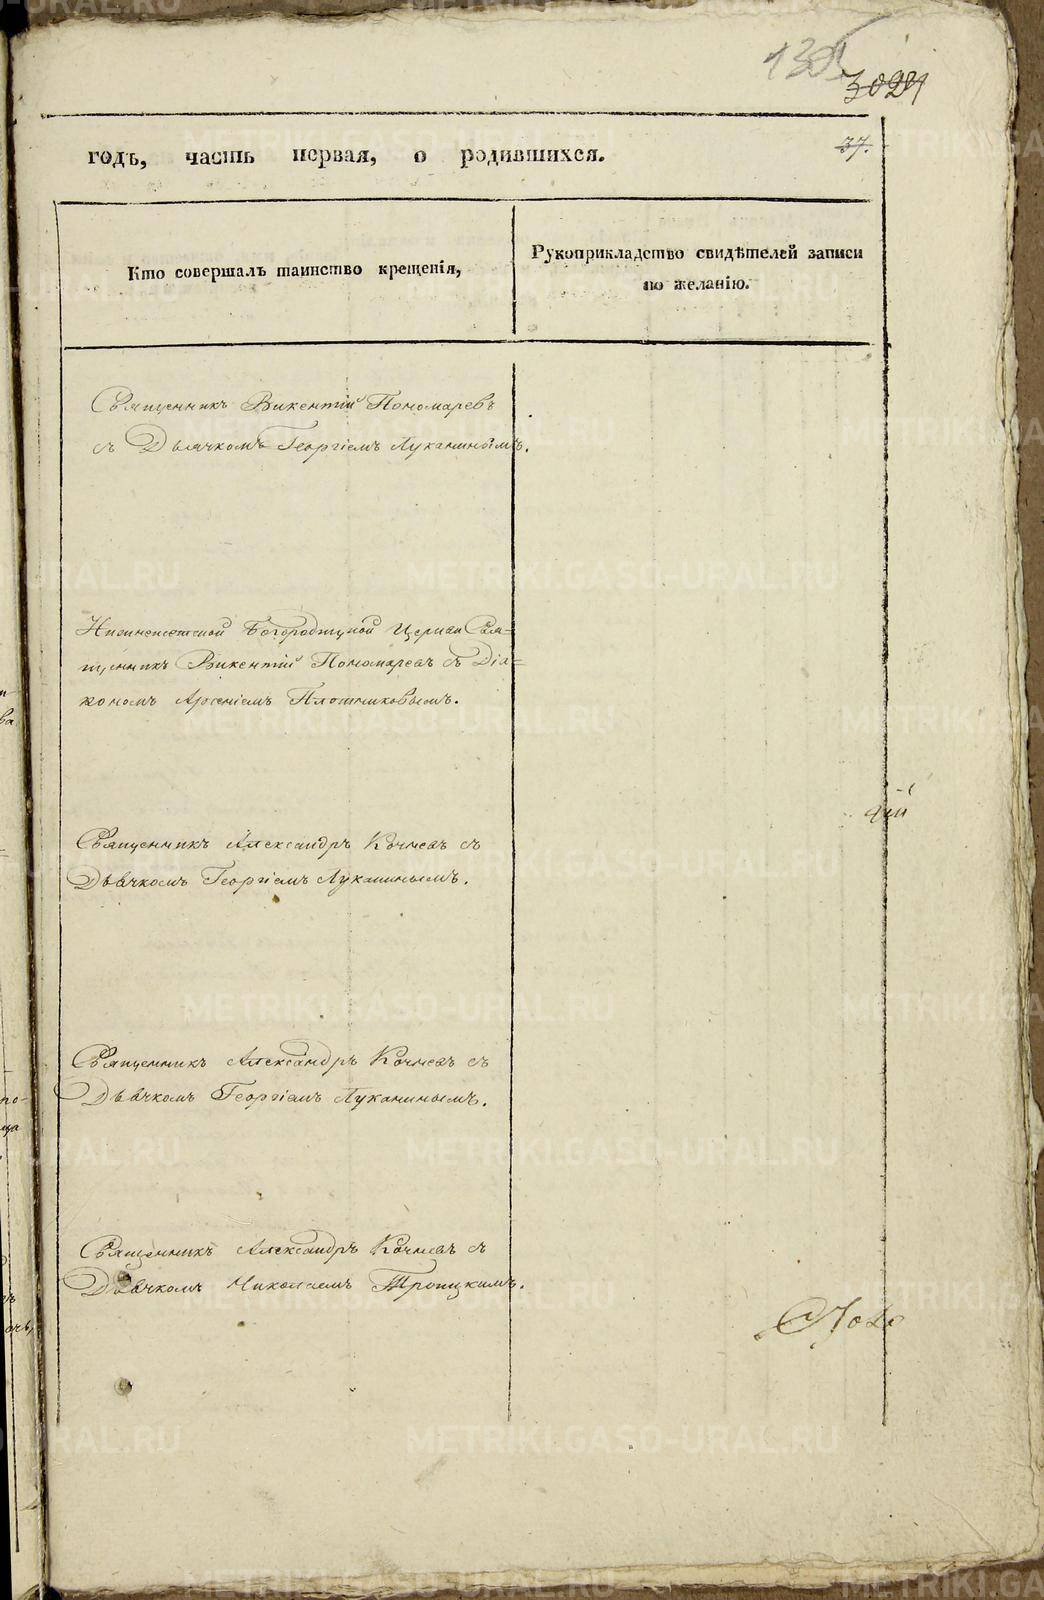 135
3024
годъ, часть первая, о родившихся.
37.
Кто совершалъ таинство крещенія,
Рукоприкладство свидѣтелей записи
по желанію.
Священникъ Викентій Пономаревъ
съ Дьячкомъ Георгіемъ Луканинымъ.
Богородицкой Церкви Свя-
щенникъ Викентій Пономаревъ съ Діа-
кономъ Арсеніемъ Плотниковымъ.
Священникъ Александръ Кочневъ съ
Дьячкомъ Георгіемъ Луканинымъ.
Священникъ Александръ Кочневъ съ
Дьячкомъ Георгіемъ Луканинымъ.
Священникъ Александръ Кочневъ съ
Дьячкомъ Николаемъ Троицкимъ.
METRIKI.GASO-URAL.RU